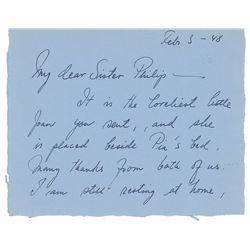 Feb 3 - 48
My dear Sister Philip —
It is the loveliest little
Joan you sent, and she
is placed beside Pia's bed.
Many thanks from both of us.
I am still resting at home,